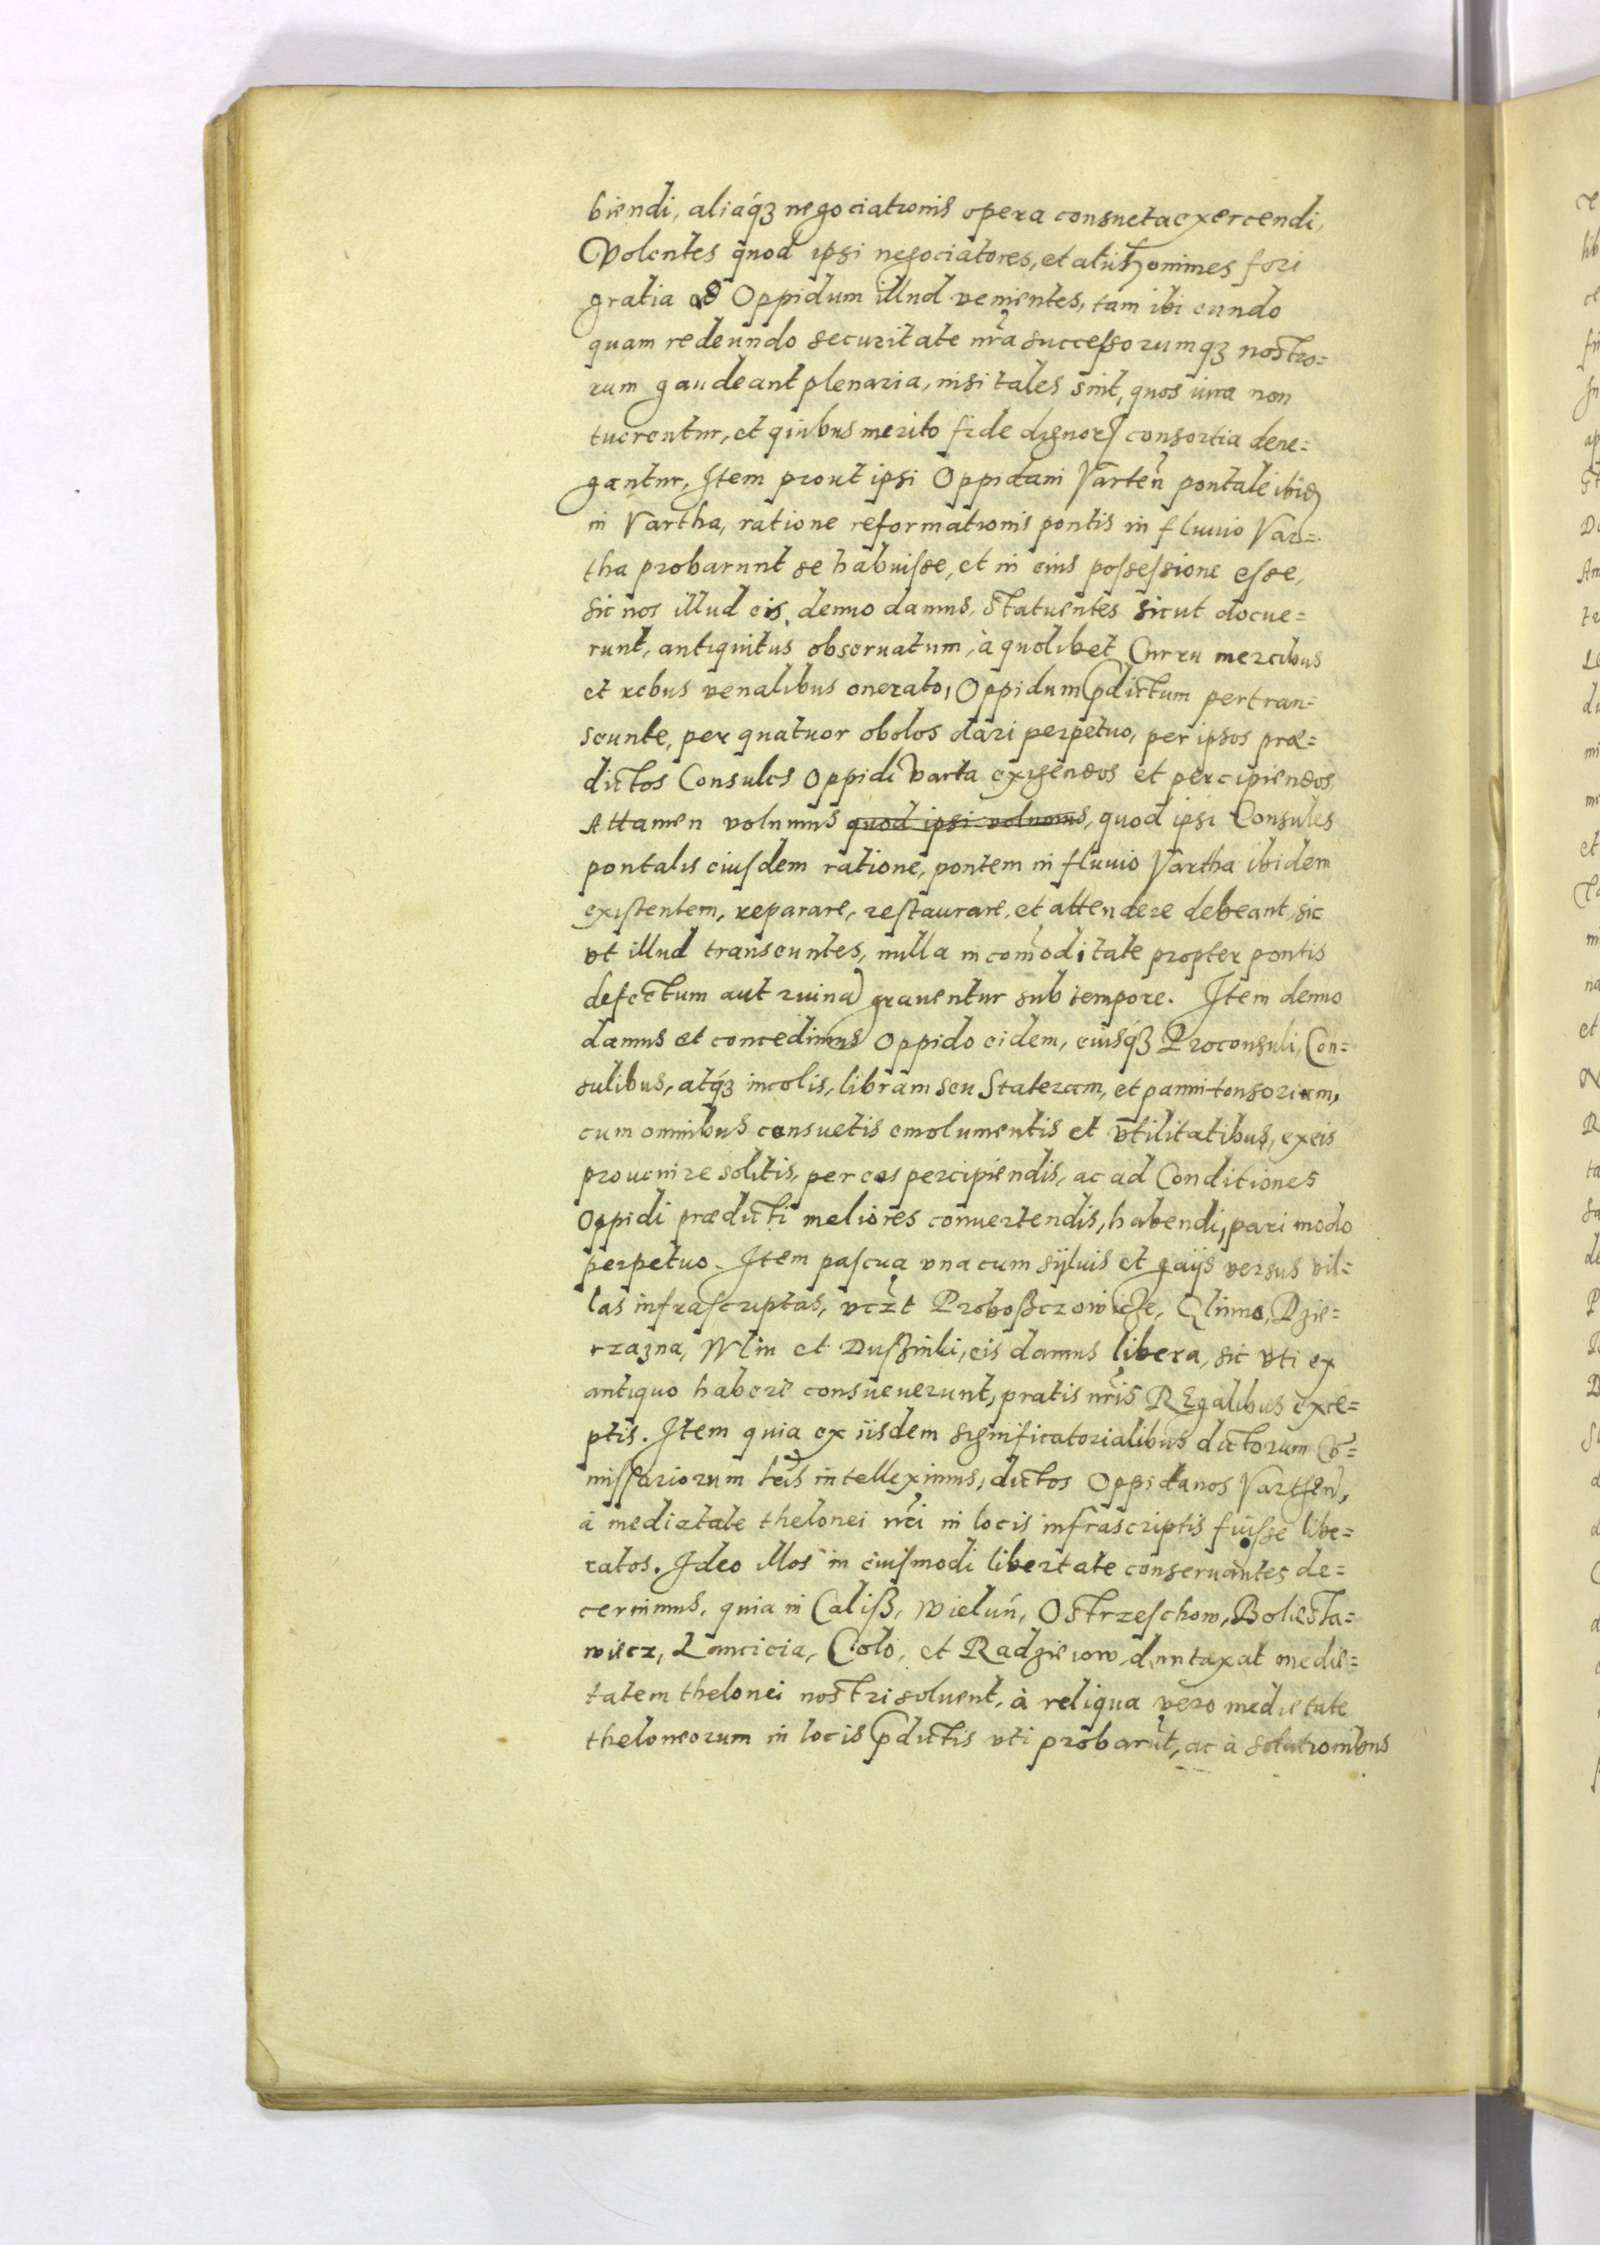 biendi, aliáq₃ negociationis opera consueta exercendi,
Volentes quod ipsi negociatores, et alii homines fori
gratia ad Oppidum illud venientes, tam ibi eundo
quam redeundo securitate nrã successorumq₃ nostro=
rum gaudeant plenaria, nisi tales sint, quos iura non
tuerentur, et quibus merito fide dignor consortia dene=
gantur, Item prout ipsi Oppidani Varteñ pontale ibid
in Vartha, ratione reformationis pontis in fluuio Var=
tha probarunt se habuisse, et in eius possessione esse,
sic nos illud eis, denuo damus, Statuentes sicut docue=
runt, antiquitus obseruatum, à quolibet Curru mercibus
et rebus venalibus onerato, Oppidum pdictum pertran=
seunte, per quatuor obolos dari perpetuo, per ipsos præ=
dictos Consules Oppidi Varta exigendos et percipiendos
Attamen volumus quod ipsi volumus, quod ipsi Consules
pontalis eiusdem ratione, pontem in fluuio Vartha ibidem
existentem, reparare, restaurare, et attendere debeant, sic
vt illud transeuntes, nulla incom̃oditate propter pontis
defectum aut ruina grauentur sub tempore. Item denuo
damus et concedimus Oppido eidem, eiusq́₃ Proconsuli, Con=
sulibus, atq́₃ incolis, libram seu Stateram, et pannitonsorium,
cum omnibus consuetis emolumentis et vtilitatibus, ex eis
prouenire solitis, per eos percipiendis, ac ad Conditiones
Oppidi prædicti meliores conuertendis, habendi, pari modo
perpetuo. Item pascua vna cum syluis et gaijs versus vil=
las infrascriptas, vcz̃t Proboßczowicze, Glinno, Dzie=
rzazna, Wlin et Duszinki, eis damus libera, sic vti ex
antiquo habere consueuerunt, pratis nr̃is REgalibus exce=
ptis. Item quia ex iisdem significatorialibus dictorum Cõ=
missariorum lr̃is intelleximus, dictos Oppidanos Vartheñ,
à medietate thelonei nr̃i in locis infrascriptis fuisse libe=
ratos. Ideo illos in eiusmodi libertate conseruantes de=
cernimus, quia in Caliß, Wieluń, Ostrzeschow, Boliesla=
wiecz, Lancicia, Colo, et Radzieiow, duntaxat medie=
tatem thelonei nostri soluent, à reliqua vero medietate
theloneorum in locis pdictis vti probarũt, ac à solutionibus